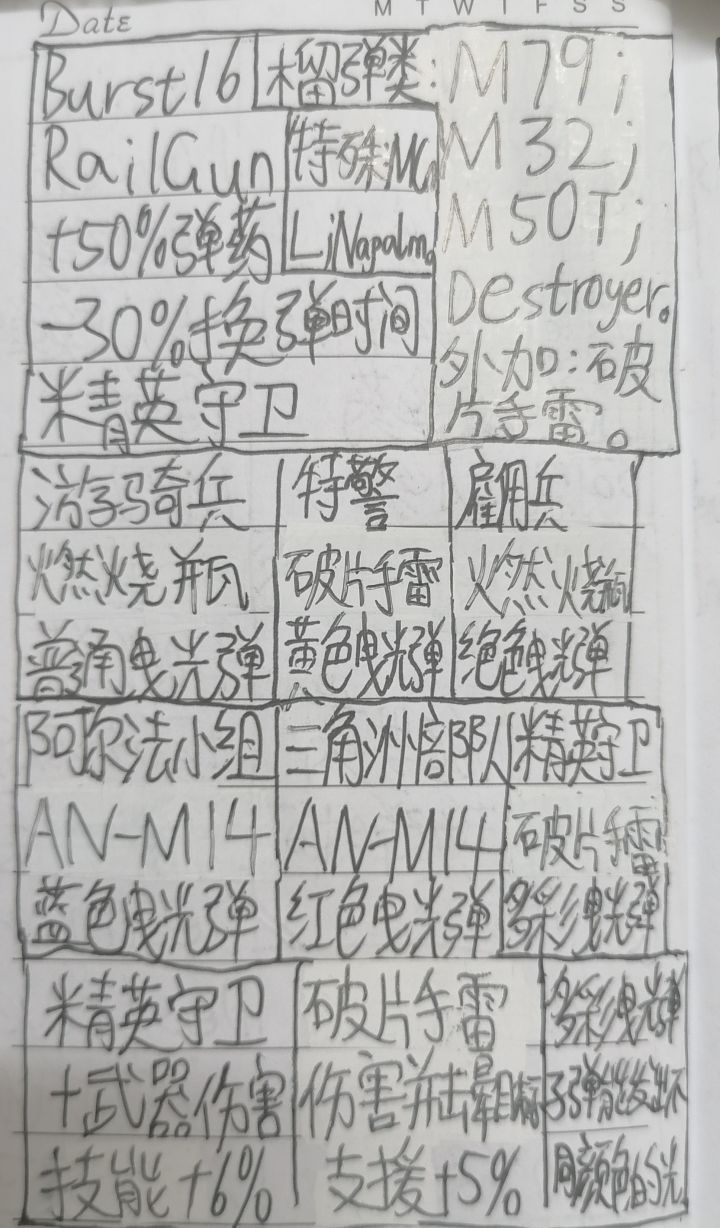 Date
M T W T F S S
Burst16
榴弹类:
M79;
M32;
M50T;
Destroyer。
外加:破
片手雷。
RailGun
特殊:MG
L;Napalm。
+50%弹药
-30%换弹时间
精英守卫
游骑兵 特警 雇佣兵
燃烧瓶 破片手雷 火燃烧瓶
普通曳光弹 黄色曳光弹 绝色曳光弹
阿尔法小组 三角洲部队 精英守卫
AN-M14 AN-M14 破片手雷
蓝色曳光弹 红色曳光弹 多彩曳光弹
精英守卫 破片手雷 多彩曳光弹
+武器伤害 伤害并击晕目标 子弹能发出不
技能+6% 支援+5% 同颜色的光